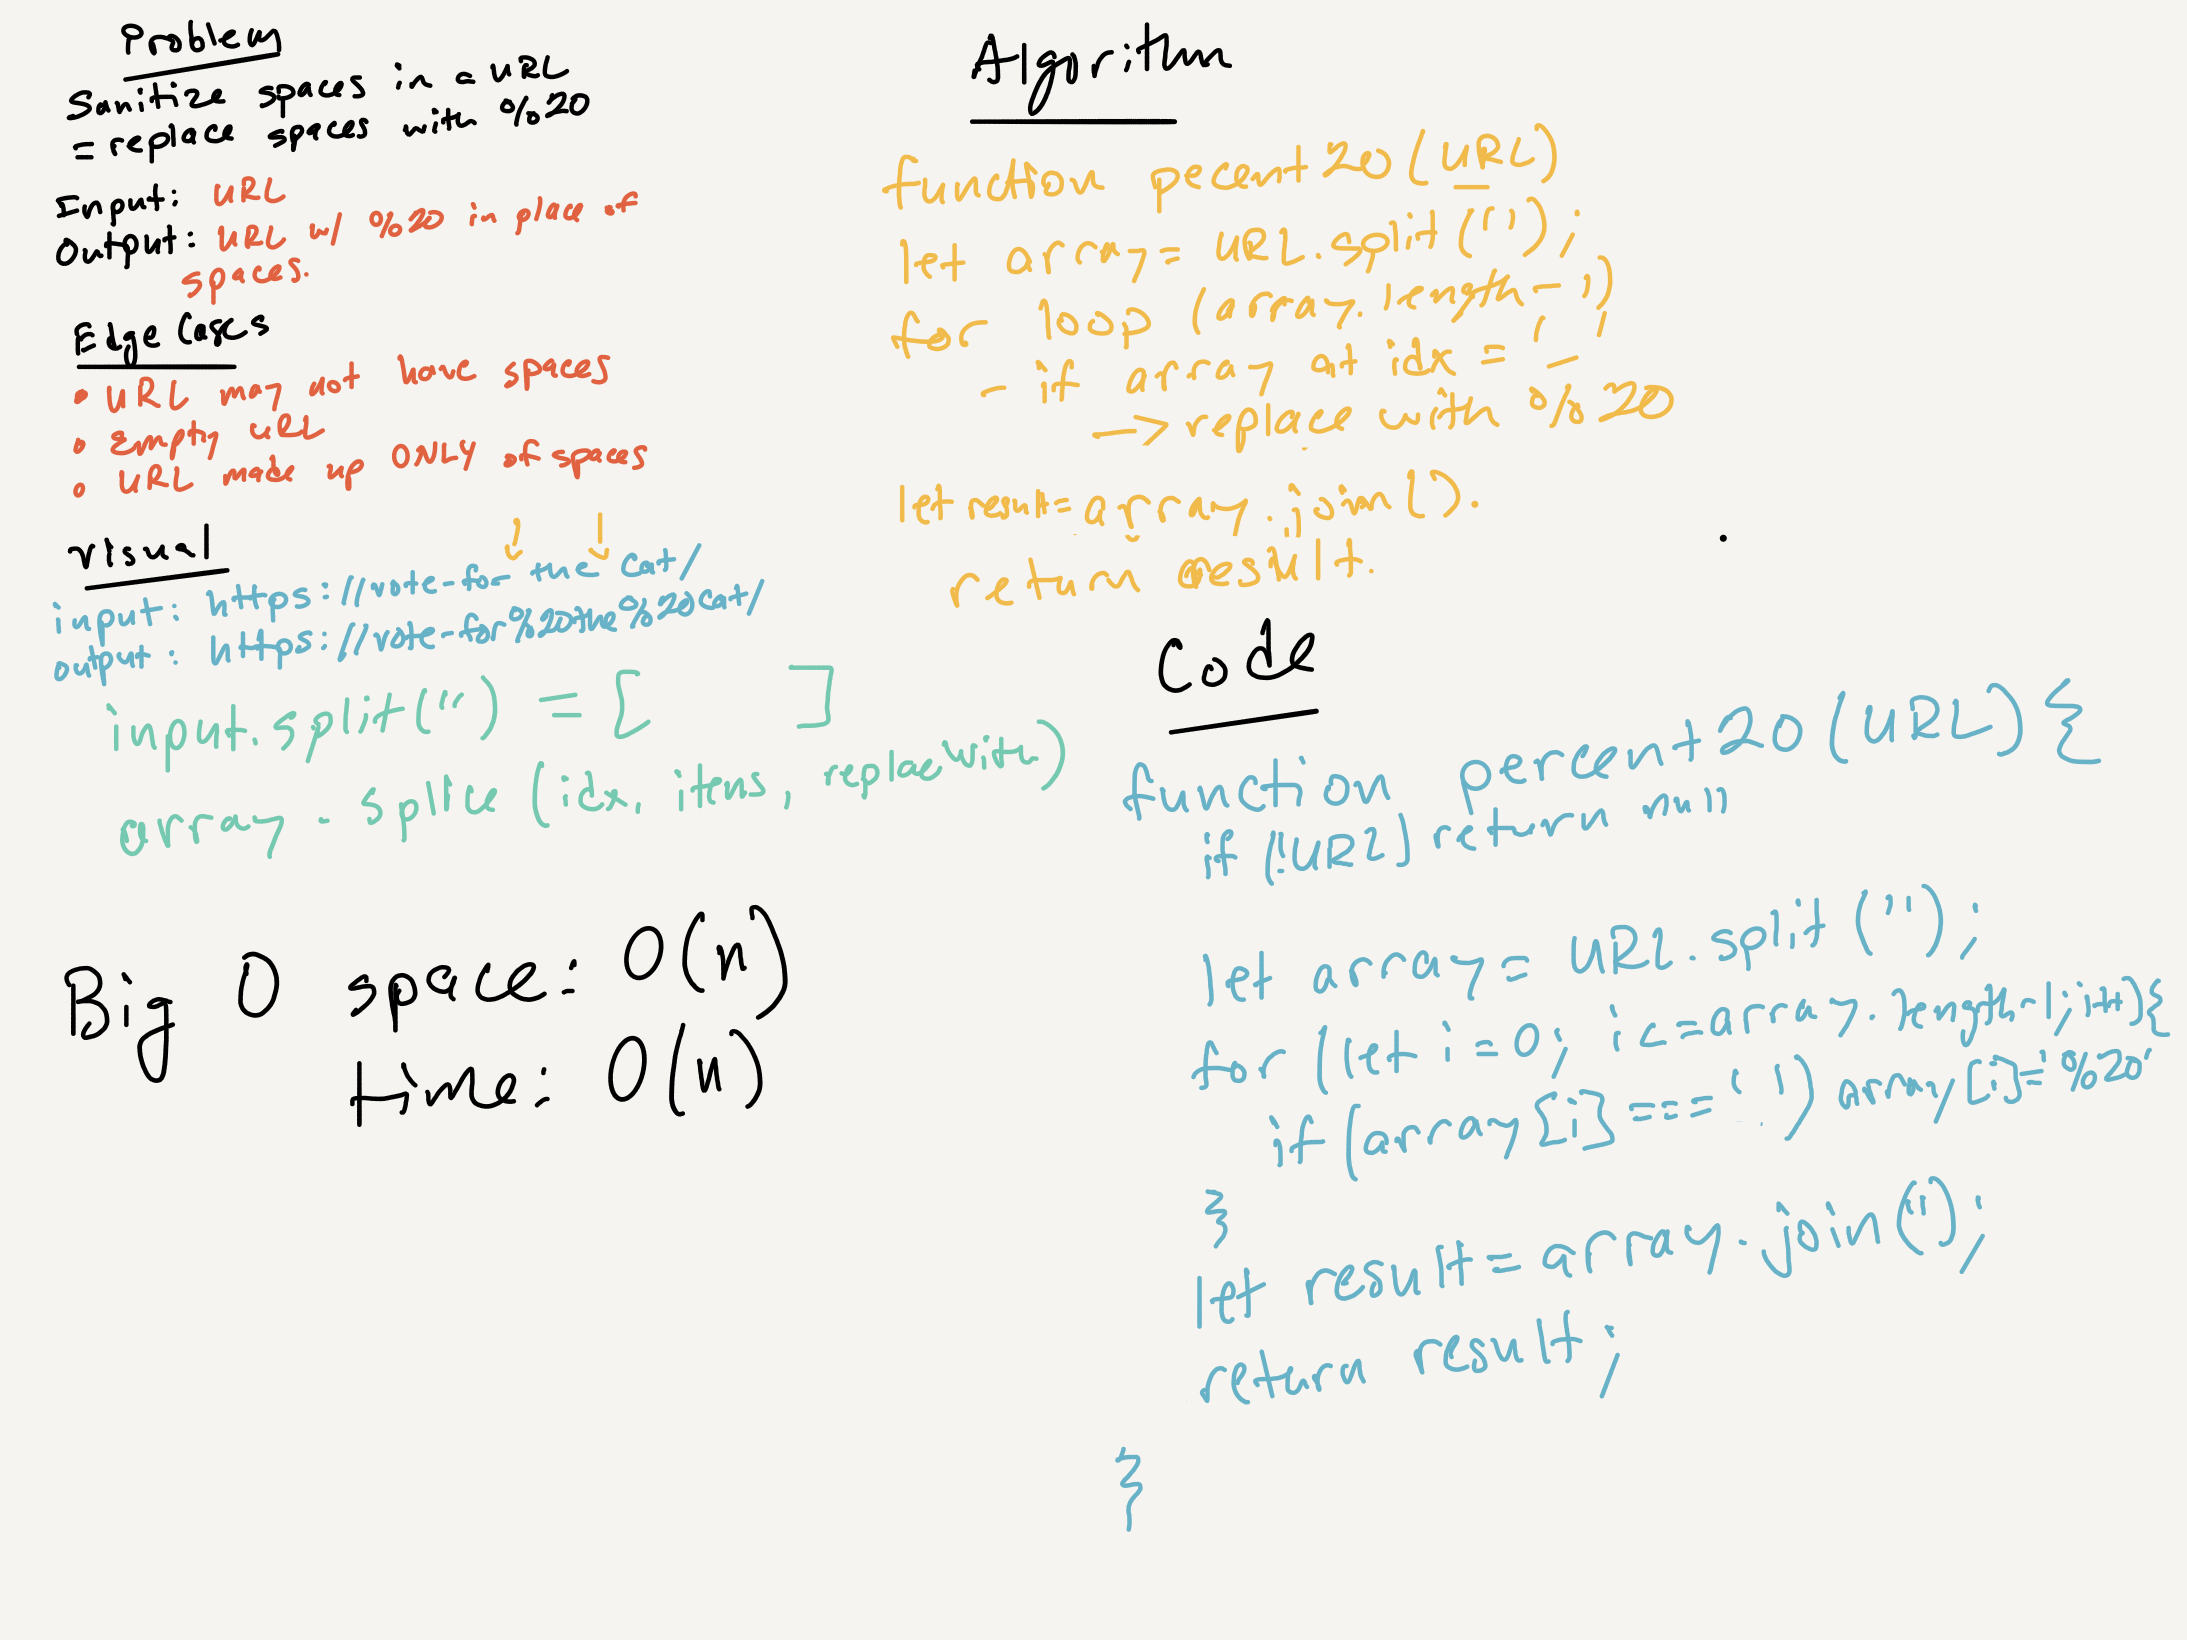 Problem
Sanitize spaces in a URL
= replace spaces with %20
Input: URL
Output: URL w/ %20 in place of
spaces.
Edge Cases
• URL may not have spaces
• Empty URL
• URL made up ONLY of spaces
Visual
input: https://vote-for the cat/
output: https://vote-for%20the%20cat/
input.split('') = [ ]
array.splice(idx, items, replacewith)
Big O space: O(n)
time: O(n)
Algorithm
function pecent20(URL)
let array = URL.split('');
for loop (array.length-1)
- if array at idx = '_'
→ replace with %20
let result = array.join().
return result.
Code
function percent20(URL){
if (!URL) return null
let array = URL.split('');
for (let i=0; i<=array.length-1; i++){
if (array[i]===' ') array[i]='%20'
}
let result = array.join('');
return result;
}